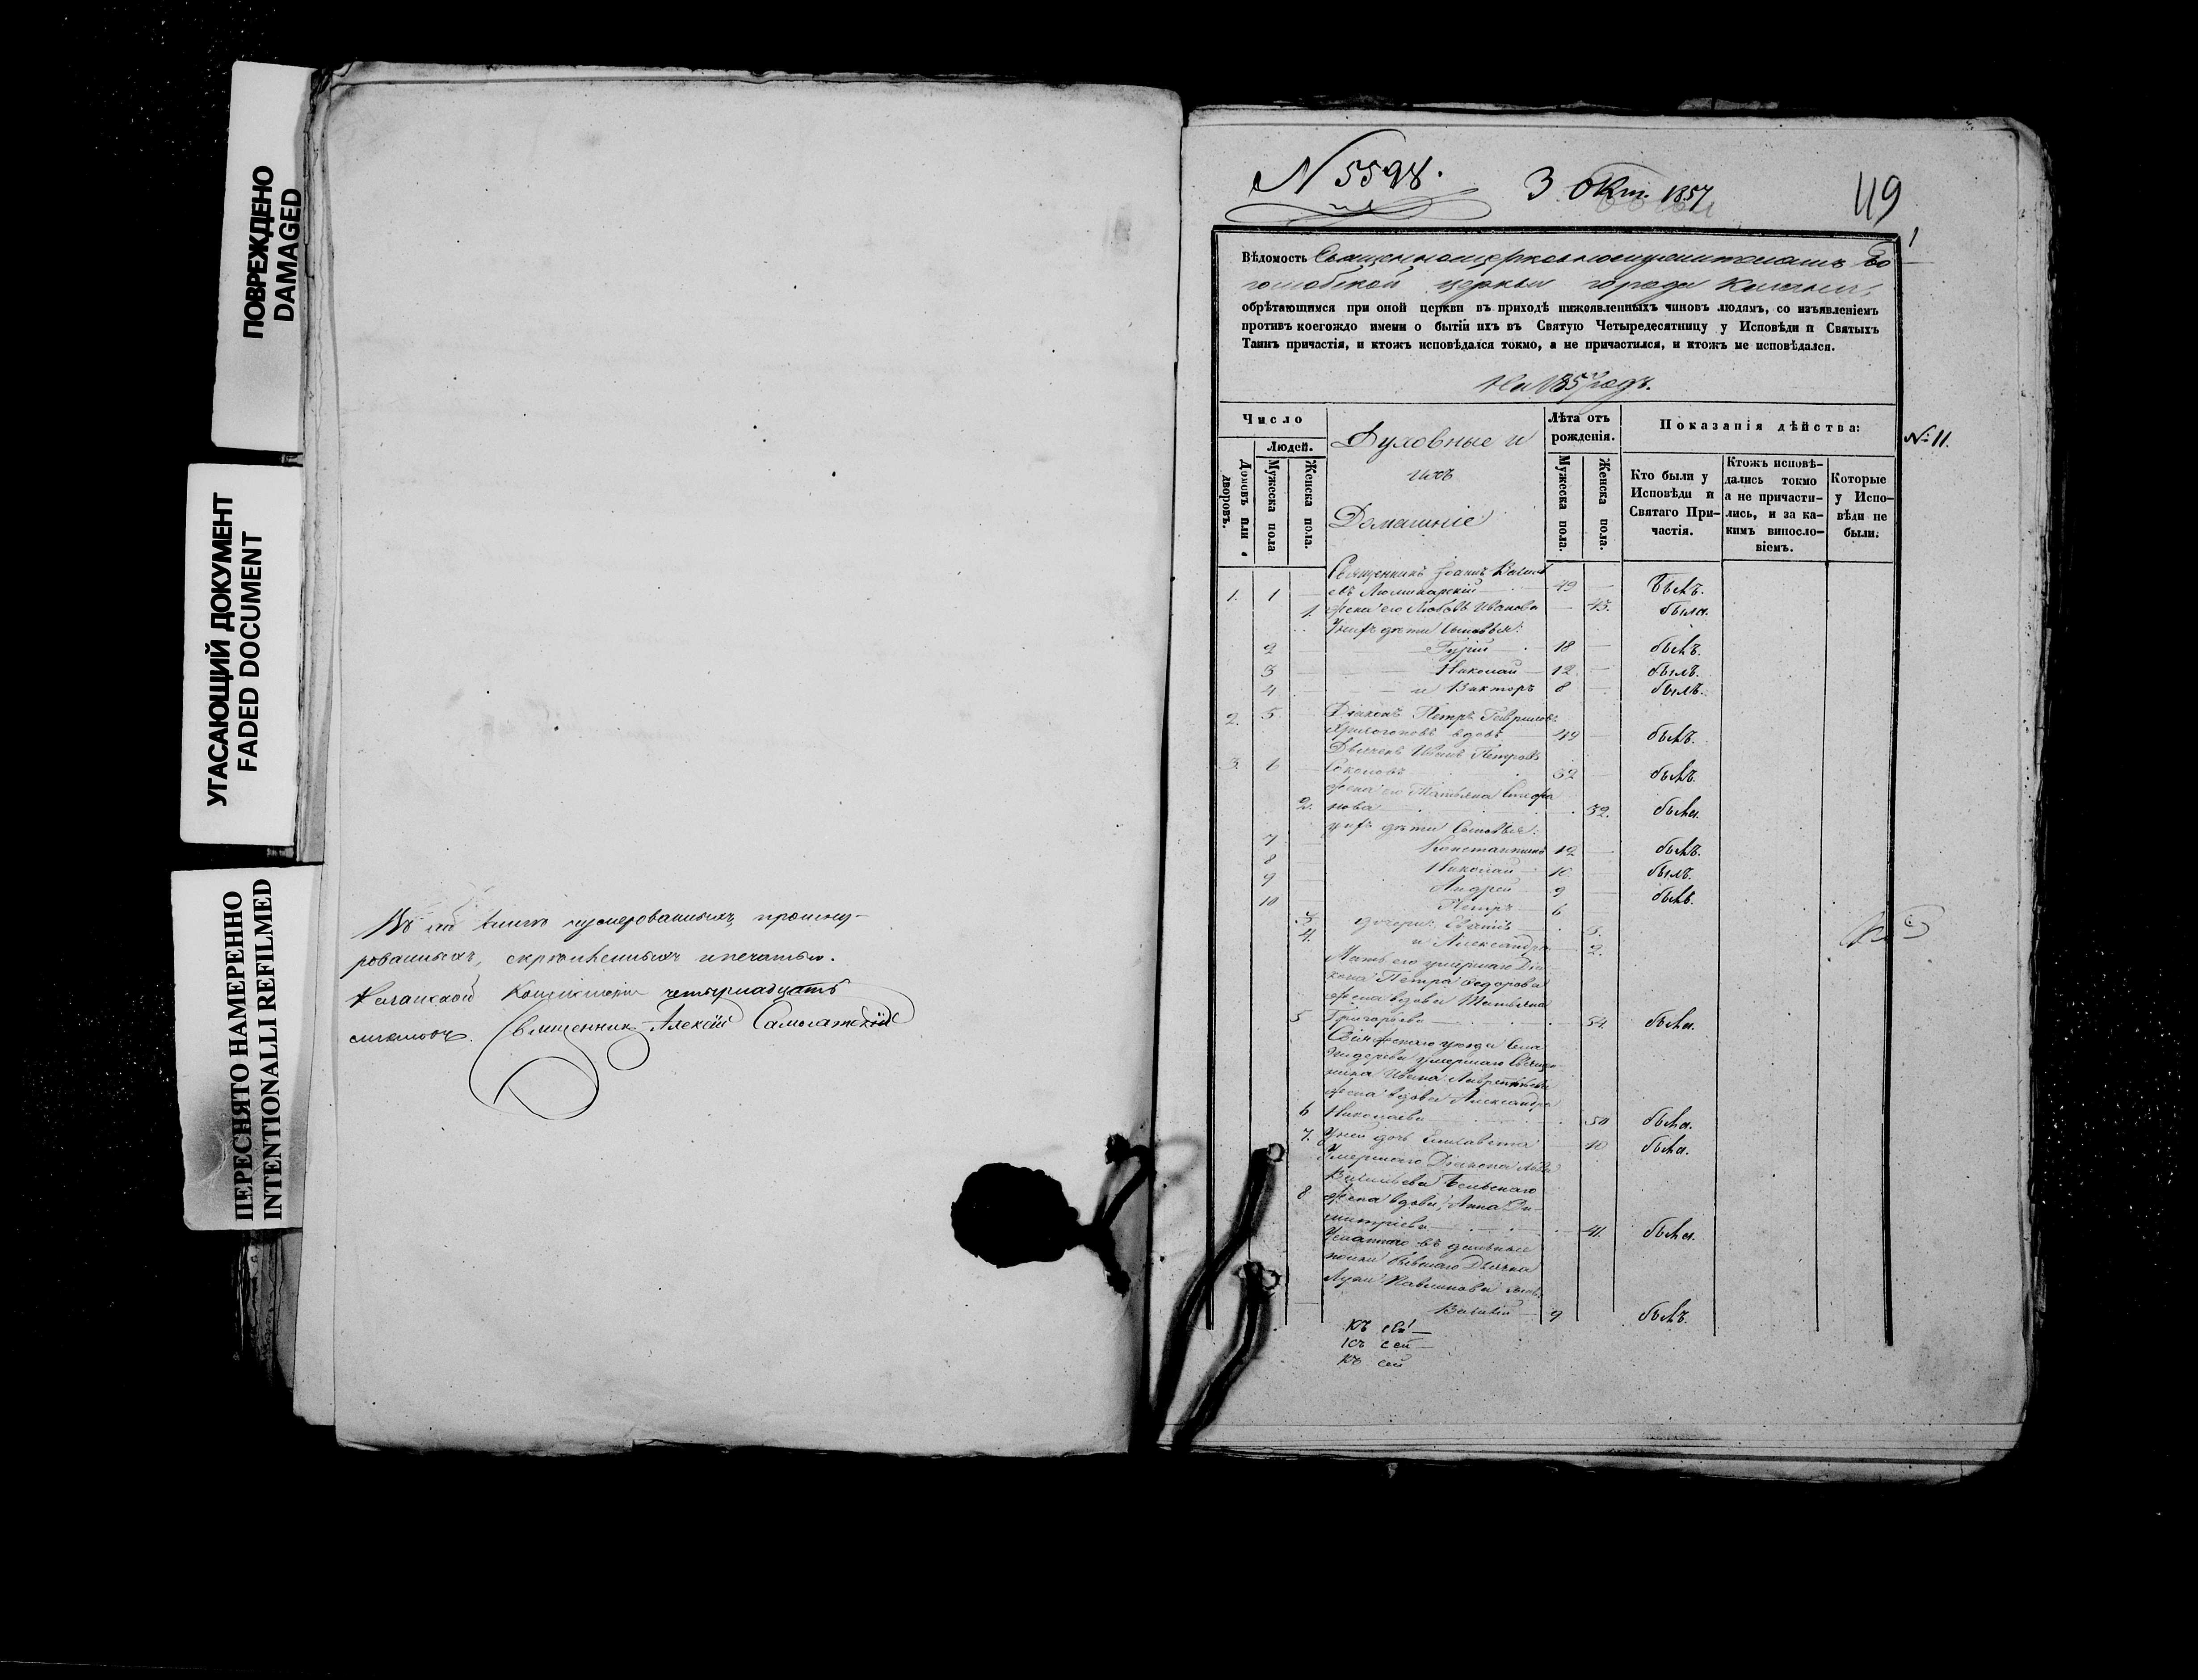 ПОВРЕЖДЕНО
DAMAGED
УГАСАЮЩИЙ ДОКУМЕНТ
FADED DOCUMENT
ПЕРЕСНЯТО НАМЕРЕННО
INTENTIONALLI REFILMED
нумерованныхъ, прошну-
рованныхъ, скрѣпленныхъ и печатью
Казанской Консисторіи четырнадцать
листовъ. Священникъ Алексій
N 5598.
3 Окт. 1857
49
1
Вѣдомость Священноцерковнослужителямъ Бо
церкви города Казани,
обрѣтающимся при оной церкви въ приходѣ нижеявленныхъ чиновъ людямъ, со изъявленіемъ
противъ коегождо имени о бытіи ихъ въ Святую Четыредесятницу у Исповѣди и Святыхъ
Таинъ причастія, и ктожъ исповѣдался токмо, а не причастился, и ктожъ не исповѣдался.
На 1857 годъ.
Число
Людей.
Домовъ или дворовъ.
Мужеска пола
Женска пола.
Духовные и
ихъ
Домашніе
Лѣта отъ рожденія.
Мужеска пола.
Женска пола.
Показанія дѣйства:
Кто были у Исповѣди и Святаго При-частія.
Ктожъ исповѣ-дались токмо а не причасти-лись, и за ка-кимъ винослo-віемъ.
Которые у Испо-вѣди не были.
№ 11.
Священникъ Іоаннъ Василь
1. 1 евъ 49 былъ.
1. жена его Любовь Иванова 45. была.
У нихъ дѣти сыновья:
2 Гурій 18 былъ.
3 Николай 12 былъ.
4 и Викторъ 8 былъ.
2. 5 Діаконъ Петръ Гавриловъ
вдовъ 49 былъ.
Дьячекъ Иванъ Петровъ
3. 6 Соколовъ 32 былъ.
жена его Татьяна
2. нова 32. была.
у нихъ дѣти сыновья:
7 Константинъ 12 былъ.
8 Николай 10 былъ.
9 Андрей 9 былъ.
10 Петръ 6
3. дочери: 5.
4. и Александра 2.
Мать его умершаго Діа-
кона Петра Федорова
жена вдова Татьяна
5 Григорьева 54 была.
уѣзда села
умершаго Священ-
ника Ивана
жена вдова Александра
6 Николаева 50 была.
7. У ней дочь Елисавета 10 была.
Умершаго Діакона
Васильева Бельскаго
8 жена вдова, Анна Ди-
митріева 41. была.
бывшаго Дьячка
Василій 9 былъ.
къ сей
къ сей
къ сей